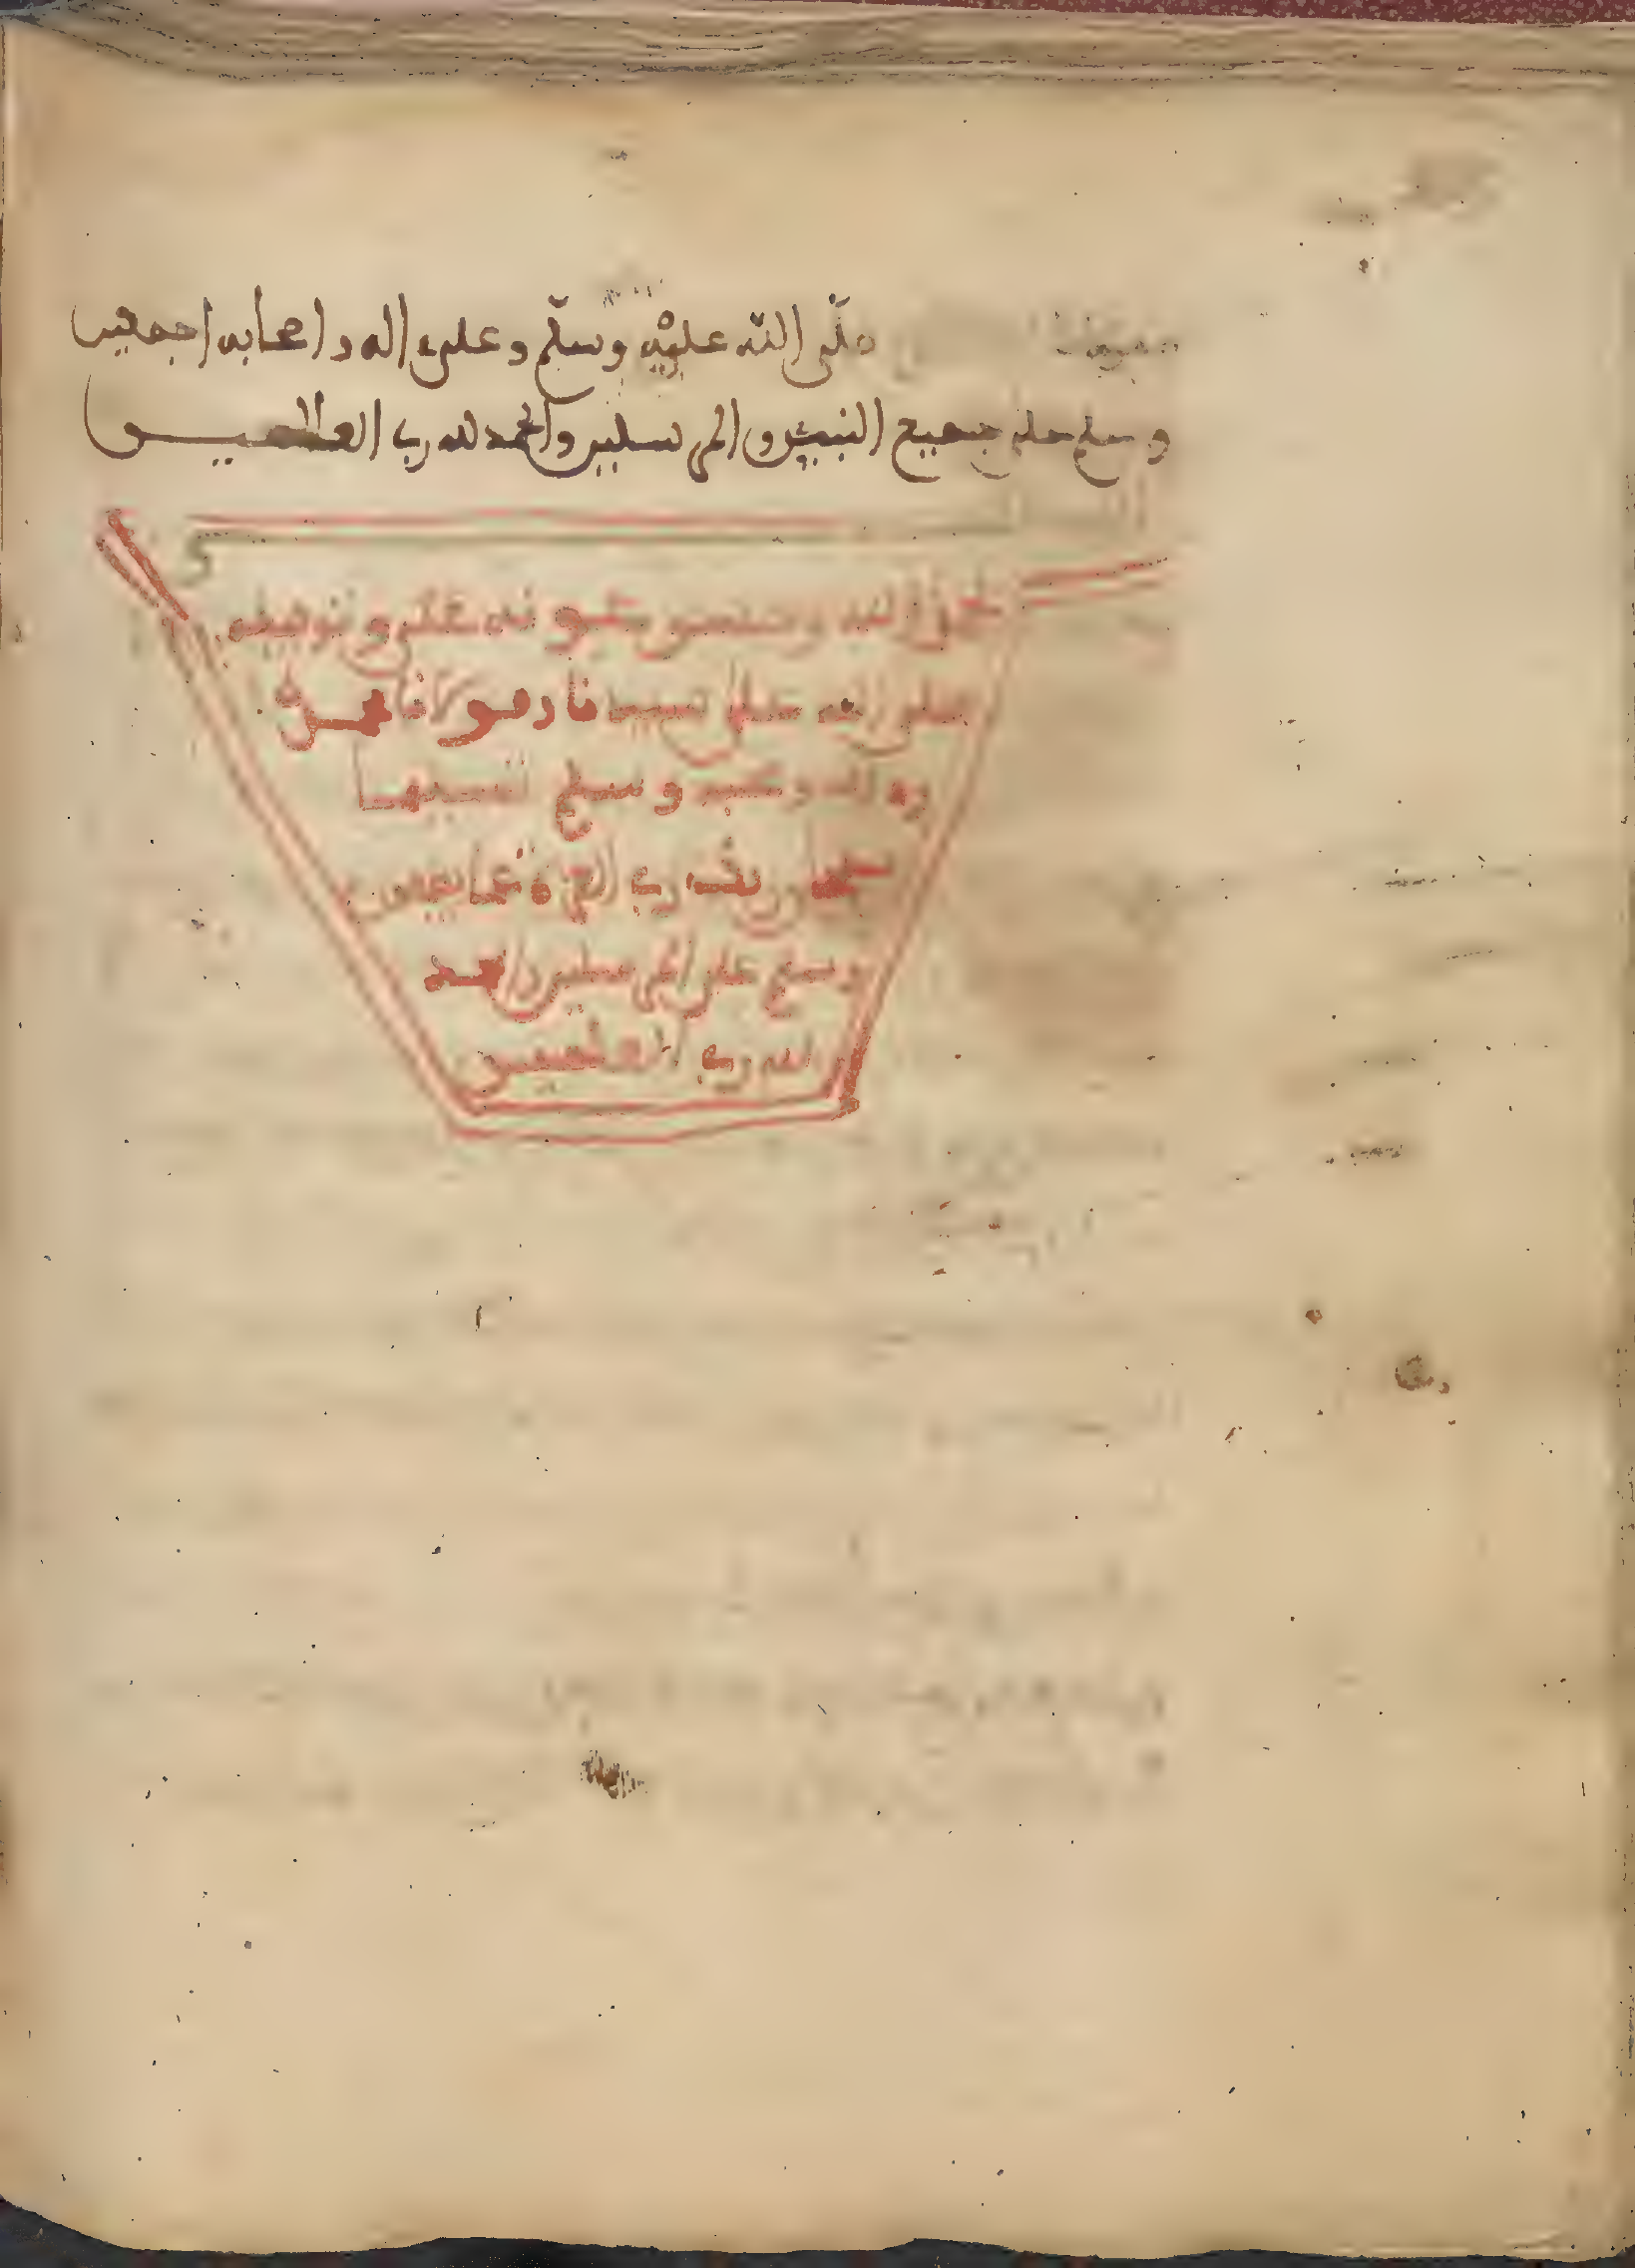 صلّى اللّه عليْه وسلّم وعلىء اله واصحابه اجمعين
وسلم على جميع النبيين والمرسلين والحمد لله رب العلمين
الله وحسن عونه
صلى الله على سيدنا ومولانا محمد
واله وصحبه وسلم تسليما
ربك رب العزة عما يصفون
وسلم على المرسلين والحمد
لله رب العلميـن